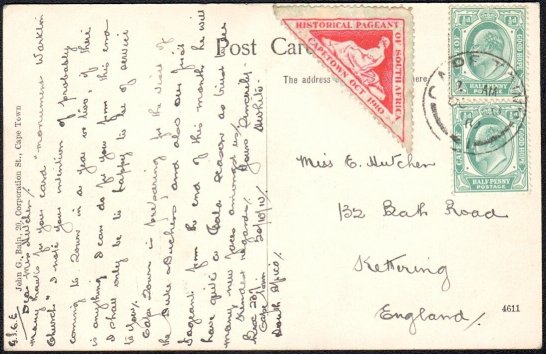 G.S.G.E.
Dear Miss Hutchen,
many thanks for your card "monument Warkton
Church" I note your intention of probably
coming to Town in a year or two, if there
is anything I can do for you from this end
I shall only be to happy to be of service
to you.
Cape Town is preparing for the visit of
the Duke & Duchess and also our great
Pageant from the end of this month we will
have quite a Gala season as
many new faces amongst us,
Kindest regards, Yours Sincerely
20/10/10
Cape Town
South Africa
John G. Bain, 29, Corporation St., Cape Town
Post Card
The address
HISTORICAL PAGEANT
OF SOUTH AFRICA
CAPETOWN OCT 1910
CAPE TOWN
CAPE OF GOOD HOPE
½d
HALF PENNY
POSTAGE
CAPE OF GOOD HOPE
½d
HALF PENNY
POSTAGE
Miss E. Hutchen
132 Bath Road
Kettering
England
4611